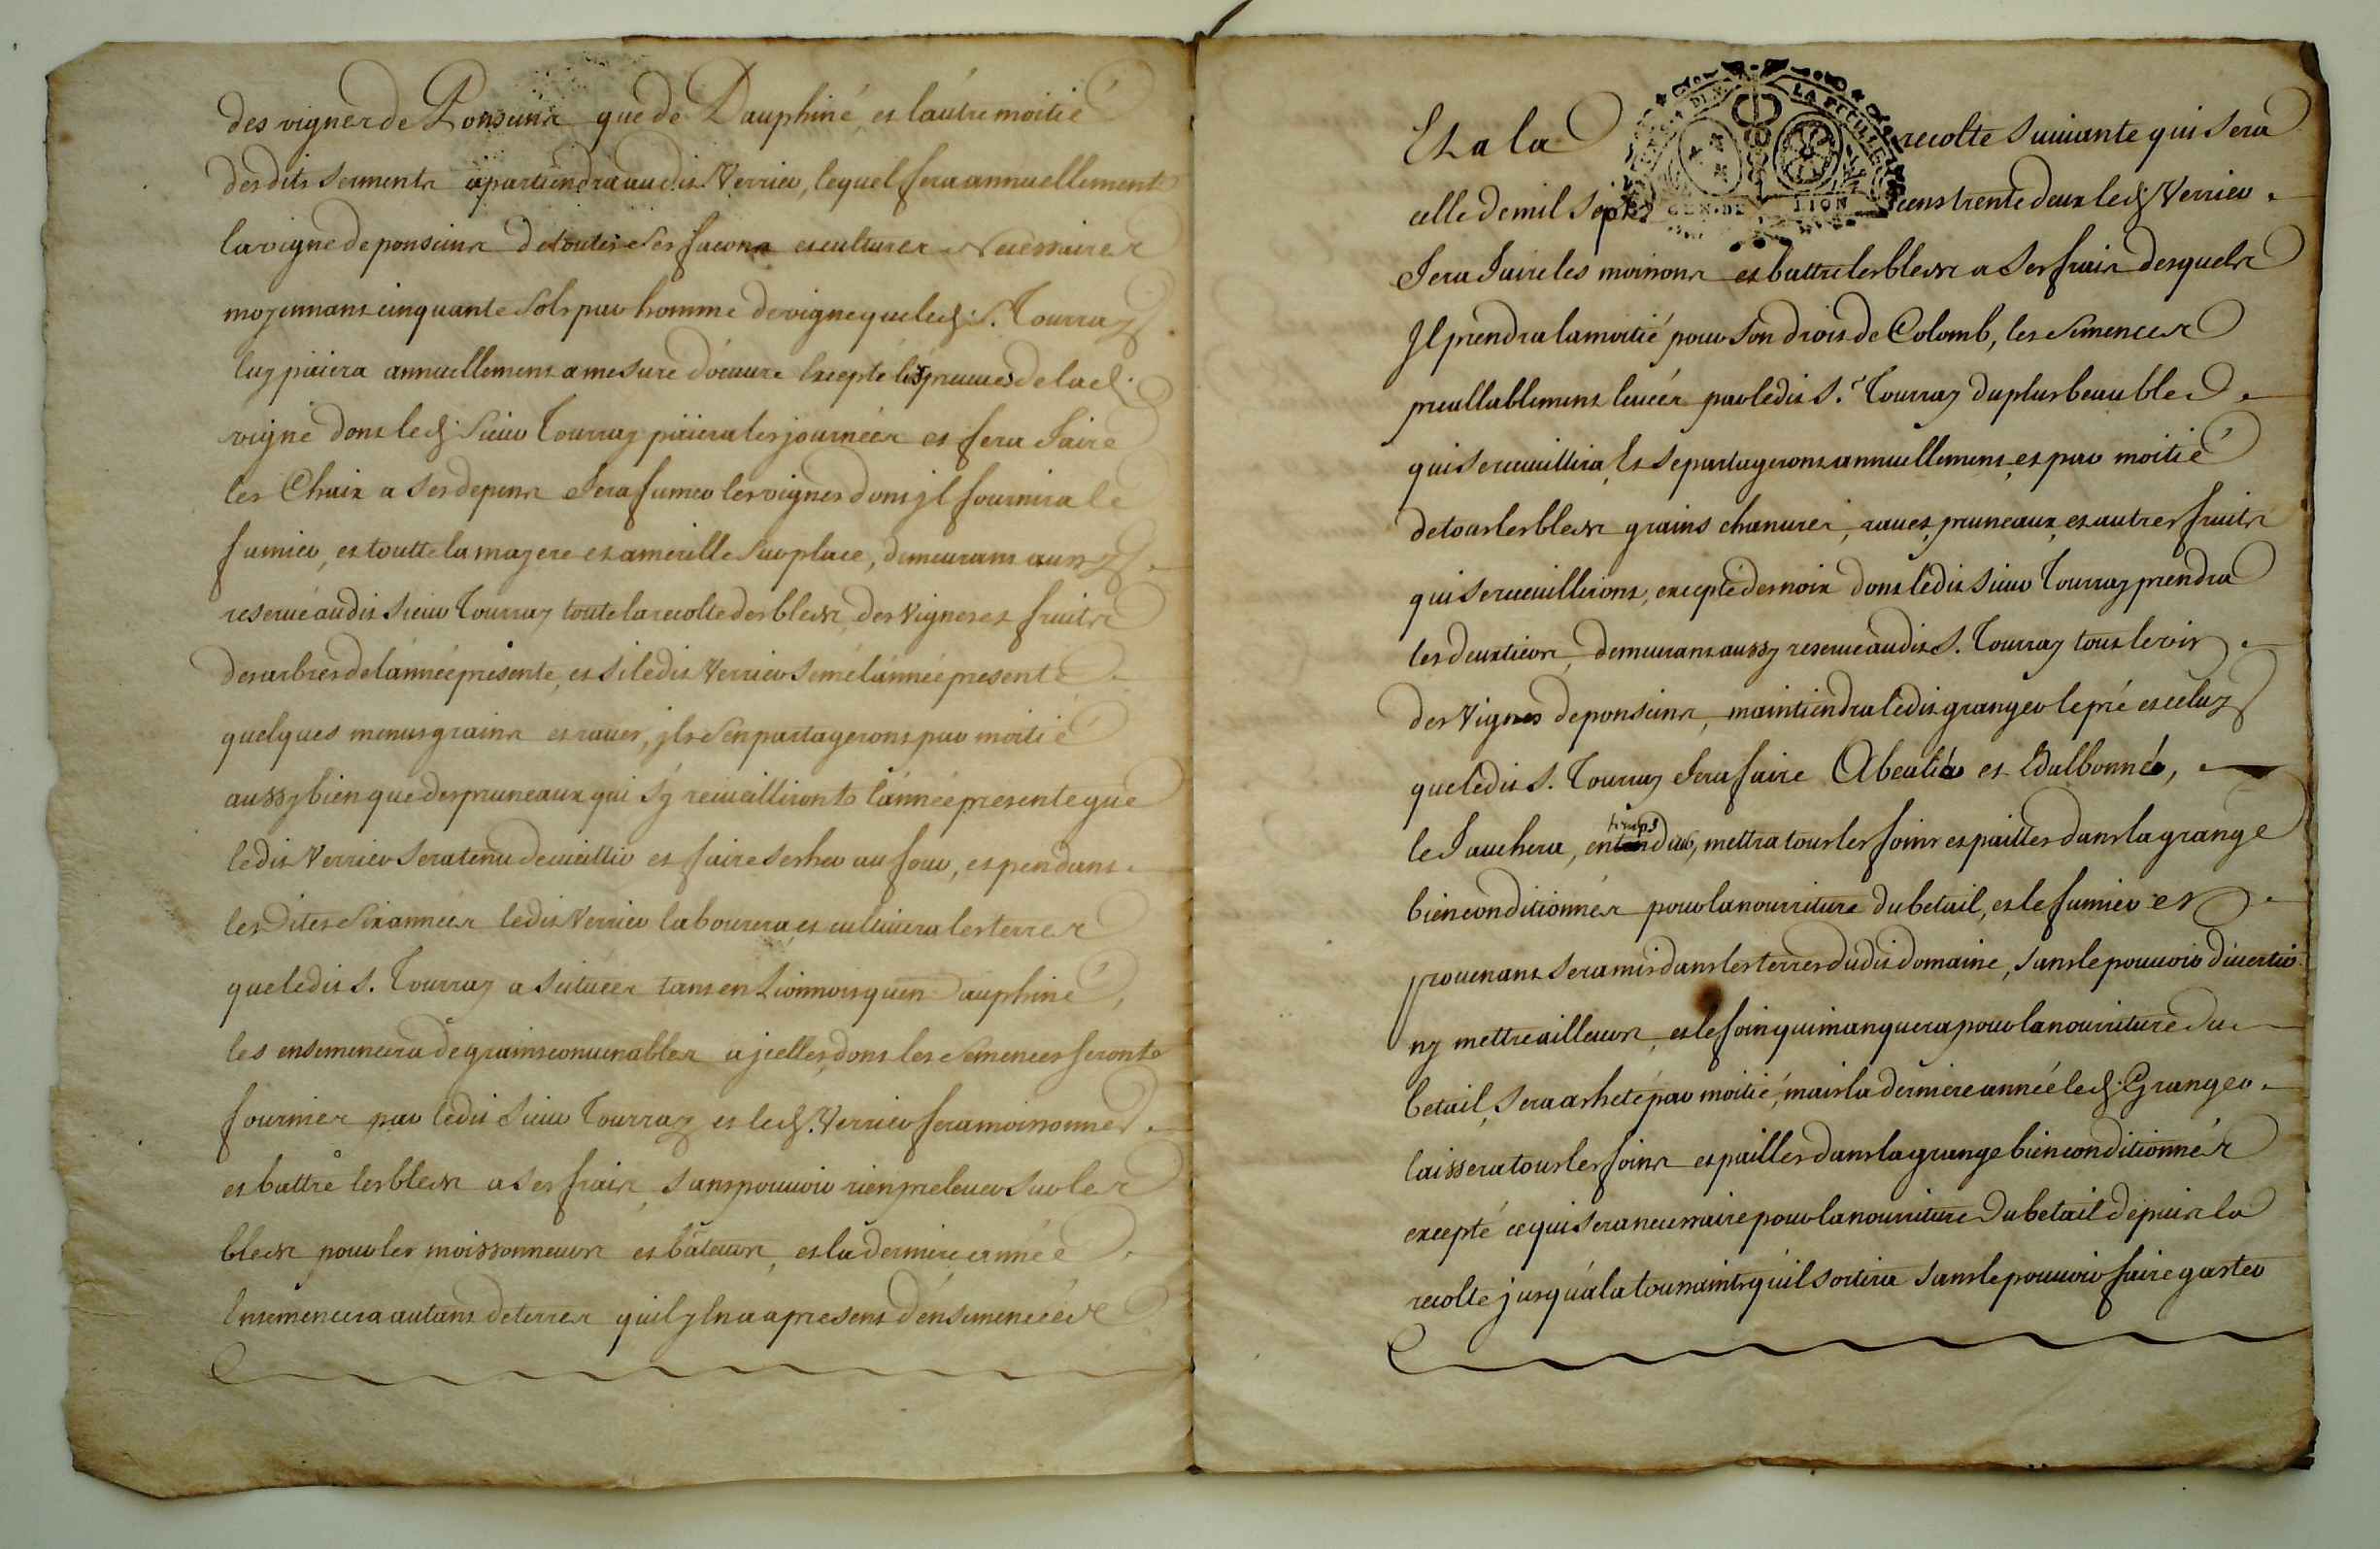 des vignes de Ponsuins que de Dauphiné, et l'autre moitié
desdits serments apartiendra audit Verrier, lequel fera annuellement
la vigne de ponsuins de toutes ses facons et cultures Necessaires
moyennant cinquante sols par homme de vigne que led. S. Tourray
luy païera annuellement a mesure d'œuure Excepté les preuues de lad.
vigne dont led. Sieur Tourray païera les journées et fera faire
les Chaix a ses depens fera fumer les vignes dont jl fournira le
fumier, et toutte la mayere et amerille sur place, demeurant aussy
reserué audit Sieur Tourray toute la recolte des bleds, des Vignes et fruits
des arbres de l'année présente, et si ledit Verrier semé l'année presente
quelques menus grains et raues, jls s'en partageront par moitié
aussy bien que des pruneaux qui s'y recuilliront l'année presente que
ledit Verrier sera tenu de cuillir et faire secher au four, et pendant
lesdites six années ledit Verrier labourera et cultiuera les terres
que ledit S. Tourray a scituées tant en Lionnois qu'en Dauphiné,
les ensemencera de grains conuenables a jcelles, dont les semences seront
fournies par ledit Sieur Tourray et led. Verrier fera moissonner
et battre les bleds a ses frais, sans pouuoir rien preleuer sur les
bleds pour les moissonneurs et bateurs, et la derniere année
Ensemencera autant de terres qu'il y En a a present d'ensemencées
Et a la recolte suiuante qui sera
celle de mil sept cens trente deux led. Verrier
fera faire les moissons et battre les bleds a ses frais desquels
Jl prendra la moitié pour son droit de Colomb, les semences
preallablement leuées par ledit S.r Tourray du plus beau bled
qui se recuillira, Et se partageront annuellement et par moitié
de tous les bleds grains chanures, raues, pruneaux, et autres fruits
qui se recuilliront, excepté des noix dont ledit Sieur Tourray prendra
les deux tiers, demeurant aussy reserué audit S. Tourray tout le vin
des Vignes de ponsuins, maintiendra ledit granger le pré et celuy
que ledit S. Tourray fera faire A beulieu et L'Dalbonne,
le fauchera, en temps dub, mettra tous les foins et pailles dans la grange
bien conditionnés pour la nourriture du betail, et le fumier en
prouenant sera mis dans les terres dudit domaine, sans le pouuoir diuertir
ny mettre ailleurs, et le foin qui manquera pour la nourriture du
betail, sera acheté par moitié, mais la derniere année led. Granger
laissera tous les foins et pailles dans la grange bien conditionnés
excepté ce qui sera necessaire pour la nourriture du betail depuis la
recolte jusqu'a la toussaints qu'il sortira sans le pouuoir faire gaster
GEN. DE LION